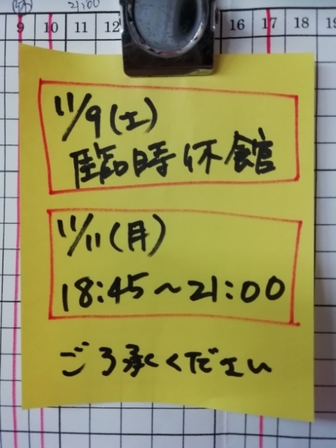 21:00
9 10 11 12 16 17 18
11/9(土)
臨時休館
11/11(月)
18:45～21:00
ご了承ください